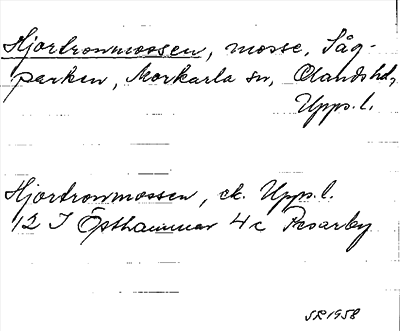 Hjortronmossen, mosse, Såg-
parken, Morkarla sn, Olands hd,
Upps. l.
Hjortronmossen, ek. Upps. l.
12 I Östhammar 4c
SR 1958